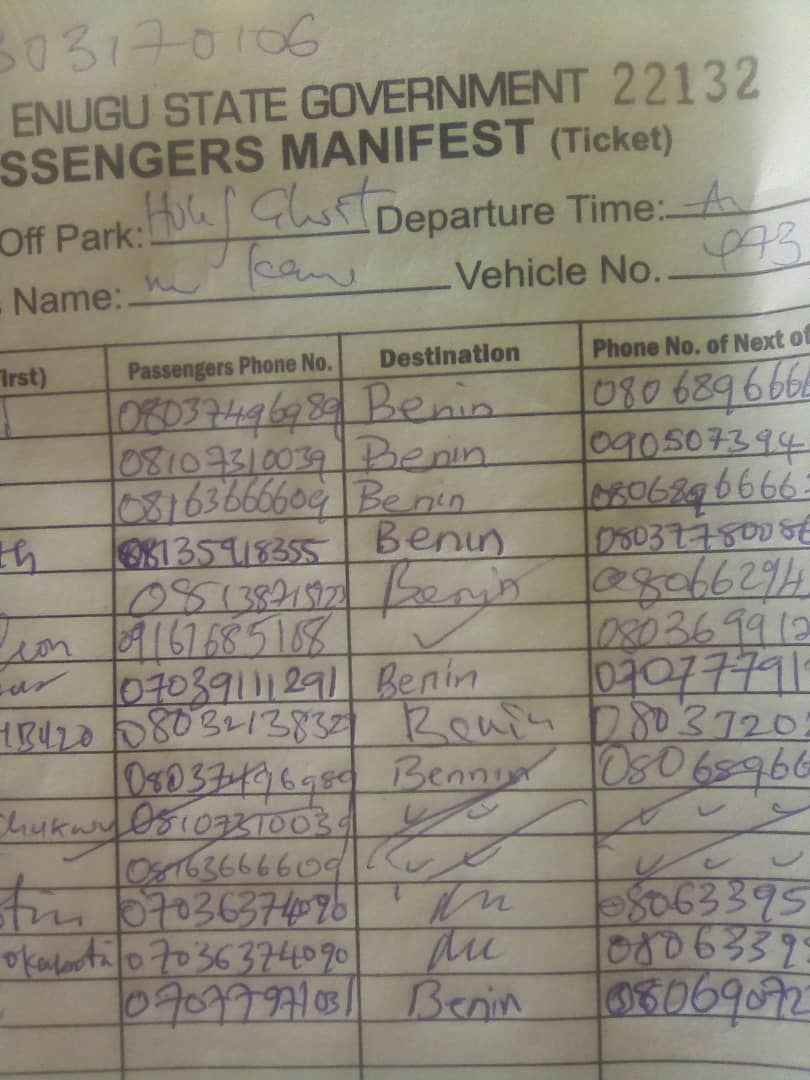 303170106
ENUGU STATE GOVERNMENT 22132
SSENGERS MANIFEST (Ticket)
Off Park: Holy Ghost Departure Time:
Name: Vehicle No.
irst) Passengers Phone No. Destination Phone No. of Next of
08037496989 Benin 0806896666
08107310039 Benin 090507394
08163666609 Benin 0806896666
th 08135918355 Benin 08037780086
Benin 08066294
09167685168 080369912
07039111291 Benin 070777791
0803213832 Benin
08037496989 Bennin 08068966
chukwu 08107310039
08163666609
07036374090 08063395
07036374090 0806339
07077971031 Benin 08069072